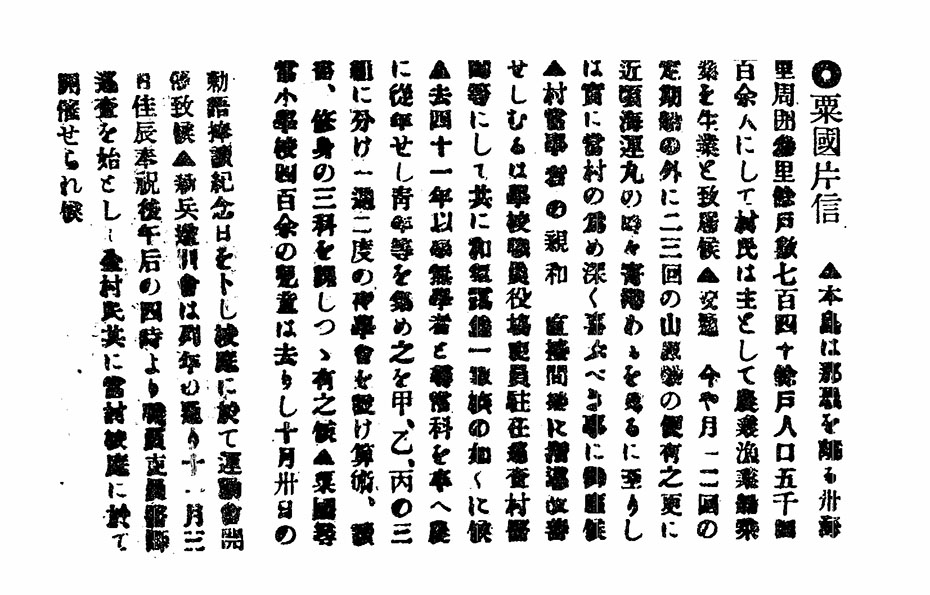 ◎粟國片信　▲本島は那覇を離る卅海
里周囲幾里餘戸数七百四十餘戸人口五千四
百余人にして村民は主として農業漁業船乗
業を生業と致居候▲交通　今や月一二回の
定期船の外に二三回の山原船の便有之更に
近頃海運丸の時々寄港あるを見るに至りし
は實に當村の爲め深く喜ぶべき事に御座候
▲村當事者の親和　直接間接に指導改善
せしむるは學校職員役場吏員駐在巡査村醫
等にして共に和氣靄然一家族の如くに候
▲去四十一年以来無學者と尋常科を卒へ農
に從事せし青年等を集め之を甲、乙、丙の三
組に分け一週二度の夜學會を設け算術、讀
書、修身の三科を課しつゝ有之候▲粟國尋
常小學校四百余の兒童は去りし十月卅日の
勅語捧讀紀念日を卜し校庭に於て運動會開
催致候▲新兵送別會は例年の通り十一月三
日佳辰奉祝後午后の四時より職員吏員醫師
巡査を始とし全村民共に當村校庭に於て
開催せられ候